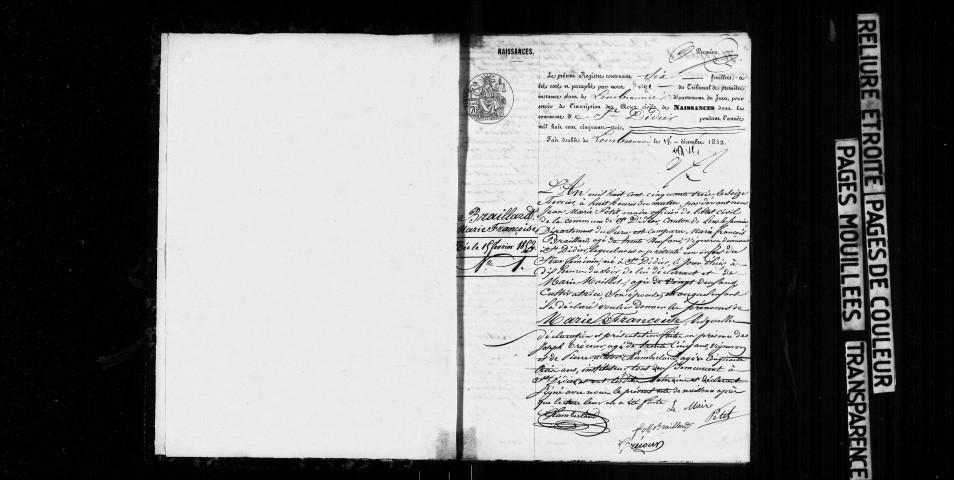 NAISSANCES.
Premier.
Le présent Registre contenant Six feuillets, a
été coté et paraphé par nous juge du Tribunal de première
instance séant de Lons-le-Saunier, département du Jura, pour
servir de l'inscription des Actes civils de NAISSANCES dans la
commune de St Didier pendant l'année
mil huit cent cinquante-trois.
Fait double à le décembre 1852.
Braillard
Marie Françoise
Née le 15 février 1853
N° 1.
L'An mil huit cent cinquante trois, le seize
février, à huit heures du matin, par devant nous
Jean Marie Petit, maire officier de l'état civil
de la commune de St Didier, Canton de Lons-le-Saunier
Département du Jura est comparu, Marie François
Braillard, agé de trente neuf ans, Vigneron demeurant
à St Didier, lequel nous a présenté un enfant de
Sexe féminin, né à St Didier, le jour d'hier à
dix heures du soir de lui déclarant et de
Marie Maillet, agée de vingt deux ans,
Cultivatrice, son épouse, et auquel enfant
il a déclaré vouloir donner les prénoms de
Marie Françoise, lesquelles
déclaration et présentation faites en présence des
Joseph Trécour, agé de trente cinq ans, vigneron
et de Pierre Chamberland, agé de cinquante
trois ans, instituteur tous deux demeurant à
St Didier, et ont les dits témoins et déclarant
signé avec nous le présent acte de naissance après
que lecture leur en a été faite.
Le Maire
Petit
Chamberland
f. M. Braillard
Trécour
RELIURE ETROITE
PAGES DE COULEUR
PAGES MOUILLEES
TRANSPARENCE